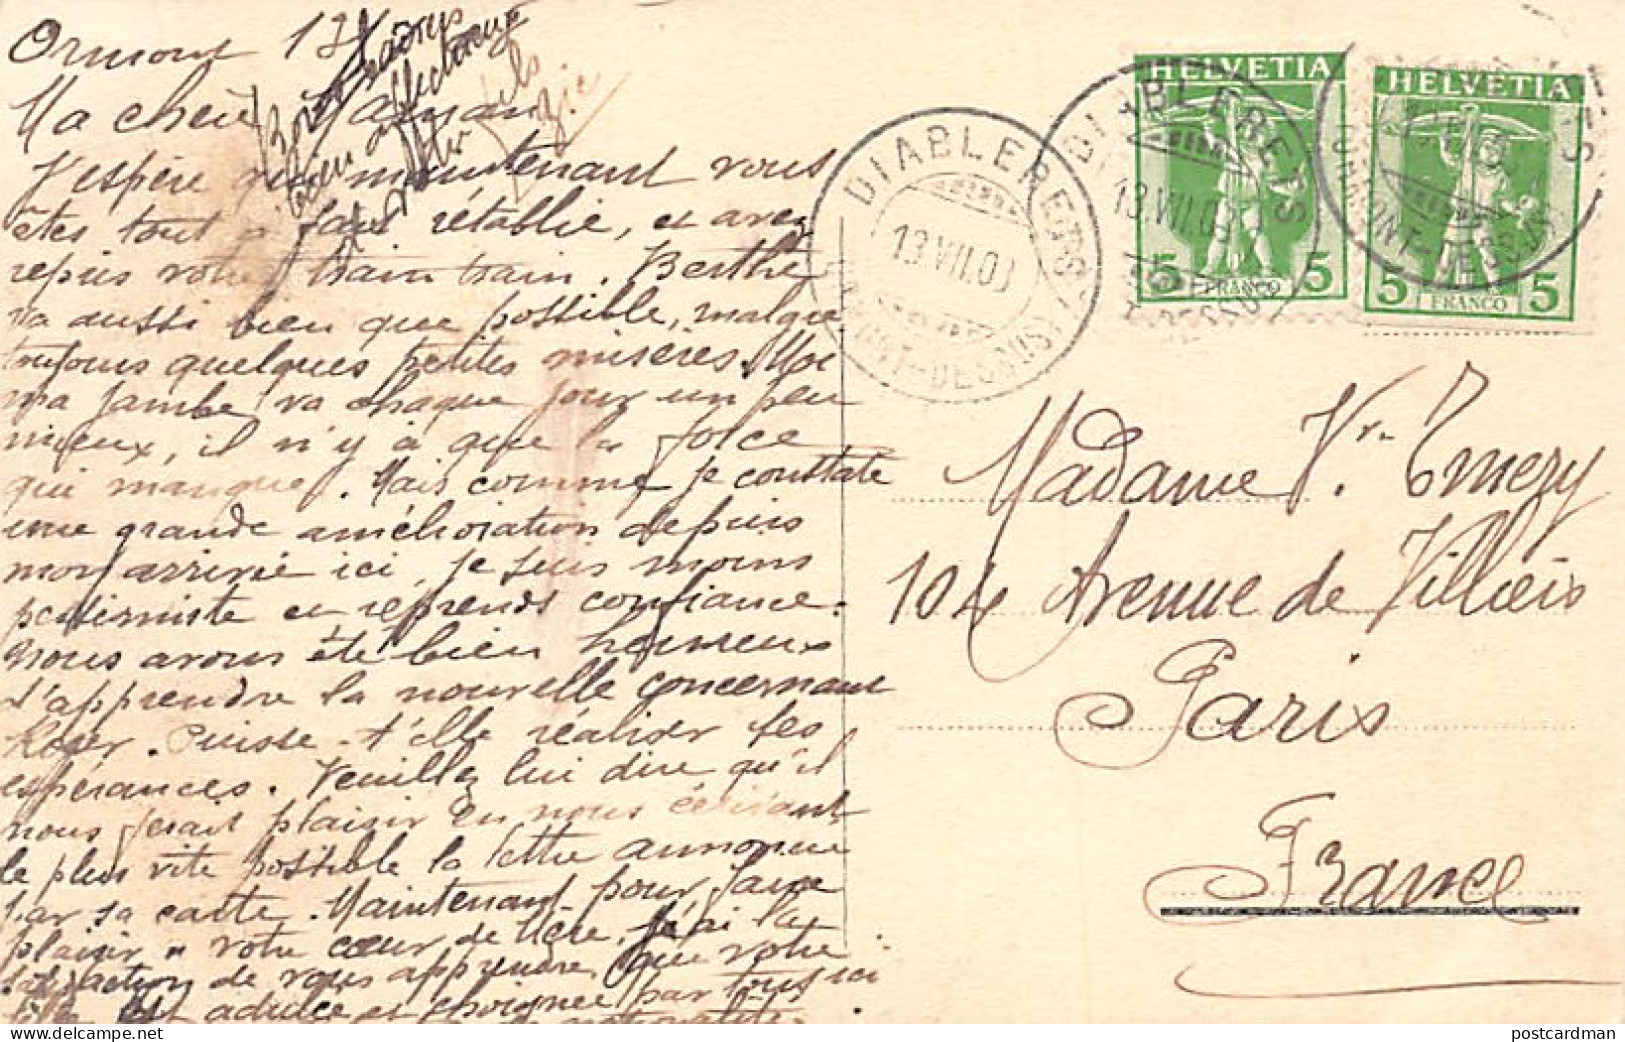 Ormont 13
Ma chère Maman
J'espère que maintenant vous
êtes tout à fait rétablie, et avez
repris votre train train. Berthe
va aussi bien que possible, malgré
toujours quelques petites misères. Moi
ma jambe va chaque jour un peu
mieux, il n'y a que la force
qui manque. Mais comme je constate
une grande amélioration depuis
mon arrivée ici, je suis moins
pessimiste et reprends confiance.
Nous avons été bien heureux
d'apprendre la nouvelle concernant
Roger. Puisse-t'elle réaliser ses
espérances. Veuillez lui dire qu'il
nous ferait plaisir en nous écrivant
le plus vite possible la lettre annoncée
par sa carte. Maintenant pour faire
plaisir à votre cœur de Mère, j'ai la
satisfaction de vous apprendre que votre
fille est adulée et choignée par tous ici
Bons baisers
bien affectueux
de votre fils
DIABLERETS
13.VII.09
(ORMONT-DESSUS)
HELVETIA
5 FRANCO 5
DIABLERETS
13.VII.09
HELVETIA
5 FRANCO 5
ORMONT-DESSUS
Madame Vve Emery
104 Avenue de Villiers
Paris
France
postcardman